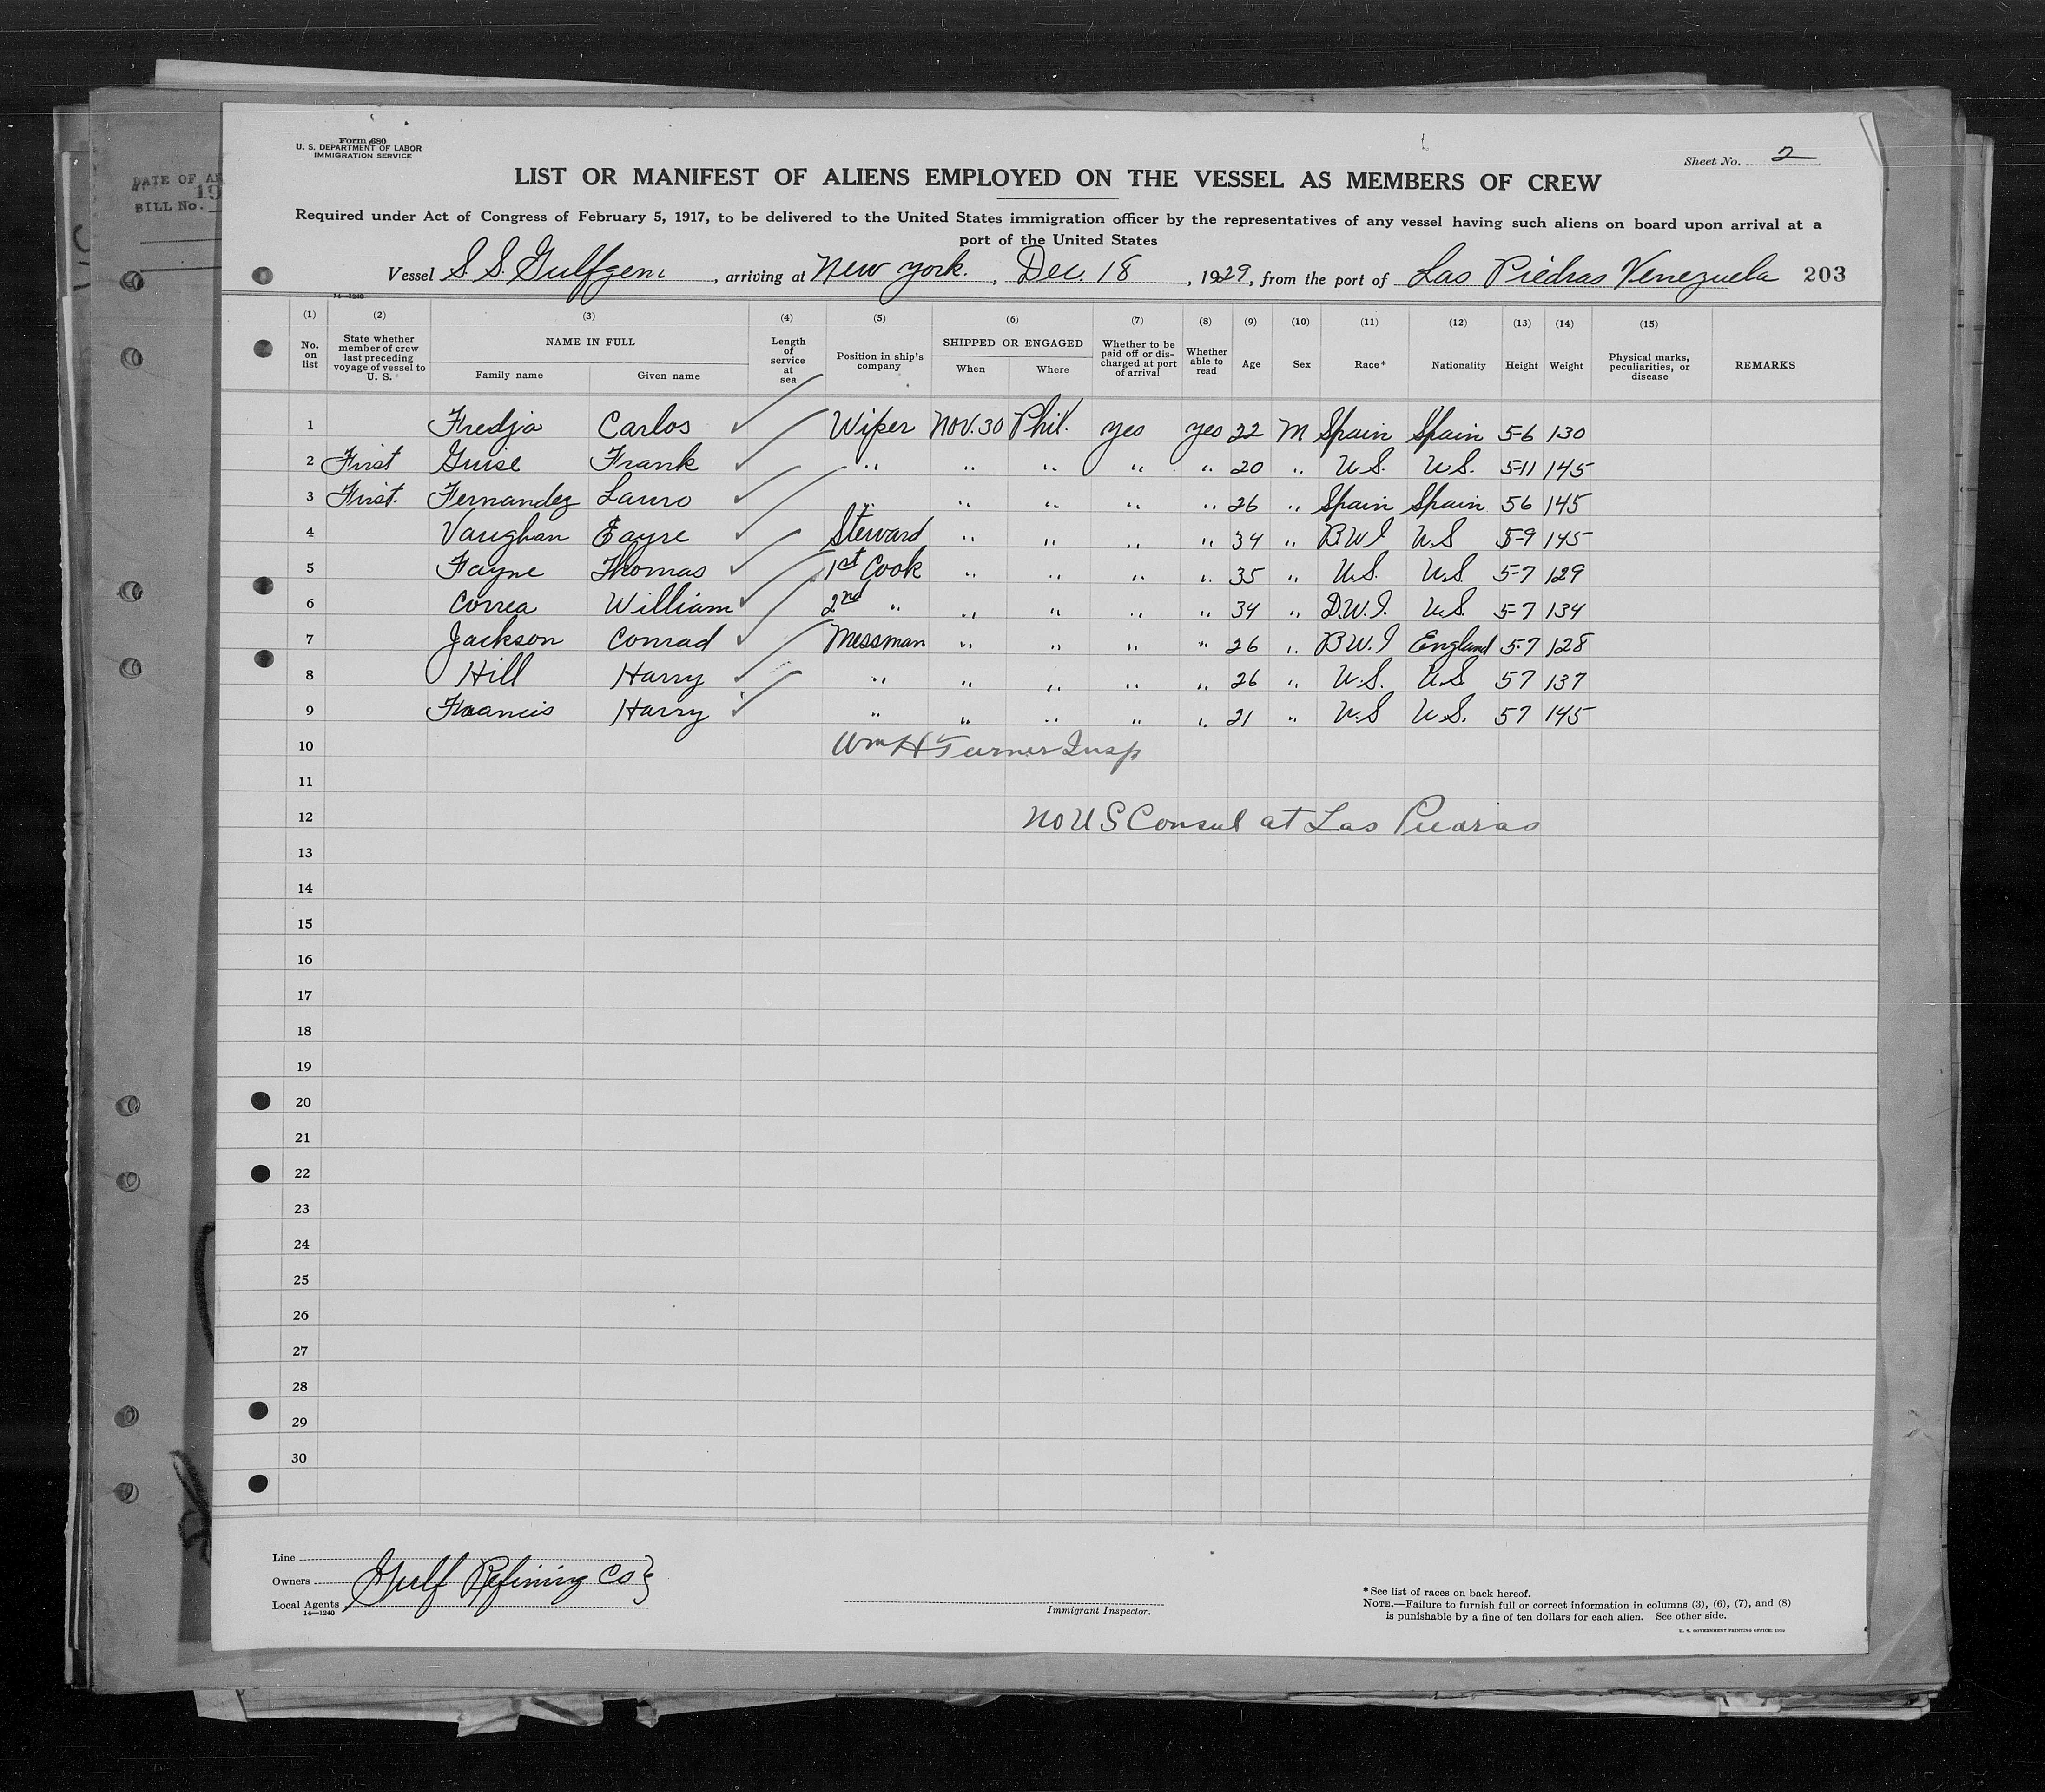 DATE OF AR
19
BILL No.
Form 680
U. S. DEPARTMENT OF LABOR
IMMIGRATION SERVICE
Sheet No. 2
LIST OR MANIFEST OF ALIENS EMPLOYED ON THE VESSEL AS MEMBERS OF CREW
Required under Act of Congress of February 5, 1917, to be delivered to the United States immigration officer by the representatives of any vessel having such aliens on board upon arrival at a
port of the United States
Vessel S.S. Gulfgem, arriving at New York., Dec. 18, 1929, from the port of Las Piedras Venezuela 203
14—1240
(1) (2) (3) (4) (5) (6) (7) (8) (9) (10) (11) (12) (13) (14) (15)
No. on list State whether member of crew last preceding voyage of vessel to U. S. NAME IN FULL Family name Given name Length of service at sea Position in ship's company SHIPPED OR ENGAGED When Where Whether to be paid off or discharged at port of arrival Whether able to read Age Sex Race* Nationality Height Weight Physical marks, peculiarities, or disease REMARKS
1 Fredja Carlos ✓ Wiper Nov. 30 Phil. yes yes 22 M Spain Spain 5-6 130
2 First Guise Frank ✓ " " " " " 20 " U.S. U.S. 5-11 145
3 First. Fernandez Lauro ✓ " " " " " 26 " Spain Spain 56 145
4 Vaughan Eayre ✓ Steward " " " " 34 " B.W.I U.S 5-9 145
5 Fayne Thomas ✓ 1st Cook " " " " 35 " U.S. U.S 5-7 129
6 Correa William ✓ 2nd " " " " " 34 " D.W.I. U.S. 5-7 134
7 Jackson Conrad ✓ Messman " " " " 26 " B.W.I England 5-7 128
8 Hill Harry ✓ " " " " " 26 " U.S. U.S 57 137
9 Francis Harry ✓ " " " " " 21 " U.S U.S. 57 145
10 Wm H Turner Insp
11
12 No US Consul at Las Piedras
13
14
15
16
17
18
19
20
21
22
23
24
25
26
27
28
29
30
Line
Owners Gulf Refining Co
Local Agents
14—1240
Immigrant Inspector.
*See list of races on back hereof.
NOTE.—Failure to furnish full or correct information in columns (3), (6), (7), and (8)
is punishable by a fine of ten dollars for each alien. See other side.